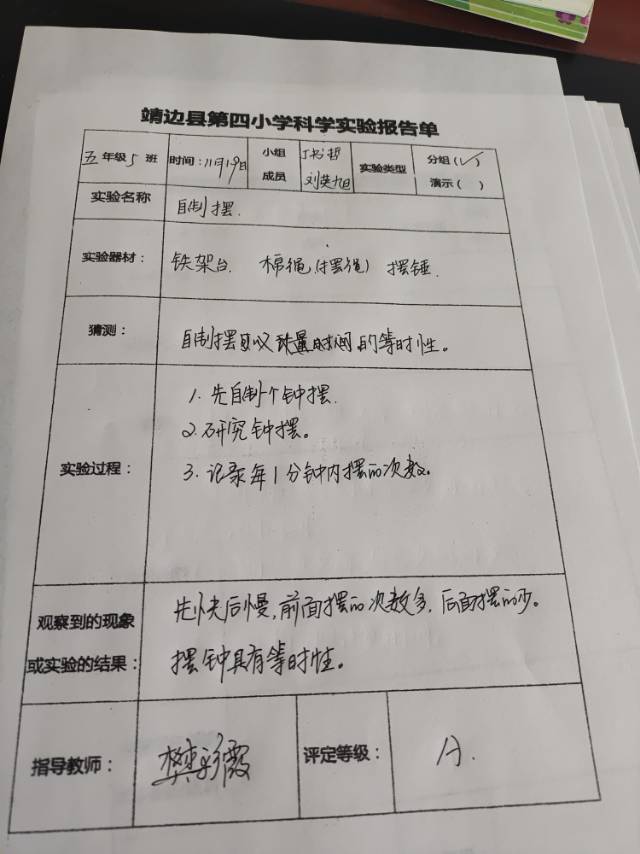 靖边县第四小学科学实验报告单
五年级5班 时间:11月19日 小组成员 刘英旭 实验类型 分组(√) 演示( )
实验名称 自制摆.
实验器材: 铁架台. 棉绳(摆绳) 摆锤.
猜测: 自制摆可以 时间的等时性。
实验过程: 1. 先自制个钟摆.
2. 研究钟摆。
3. 记录每1分钟内摆的次数.
观察到的现象 先快后慢,前面摆的次数多,后面摆的少。
或实验的结果: 摆钟具有等时性。
指导教师: 樊彩霞 评定等级: A.